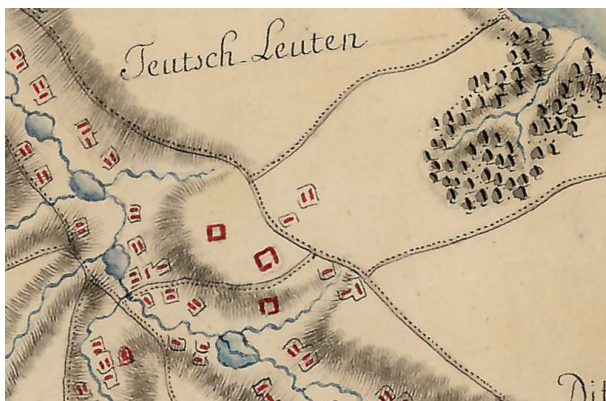 Teutsch-Leuten
Dit